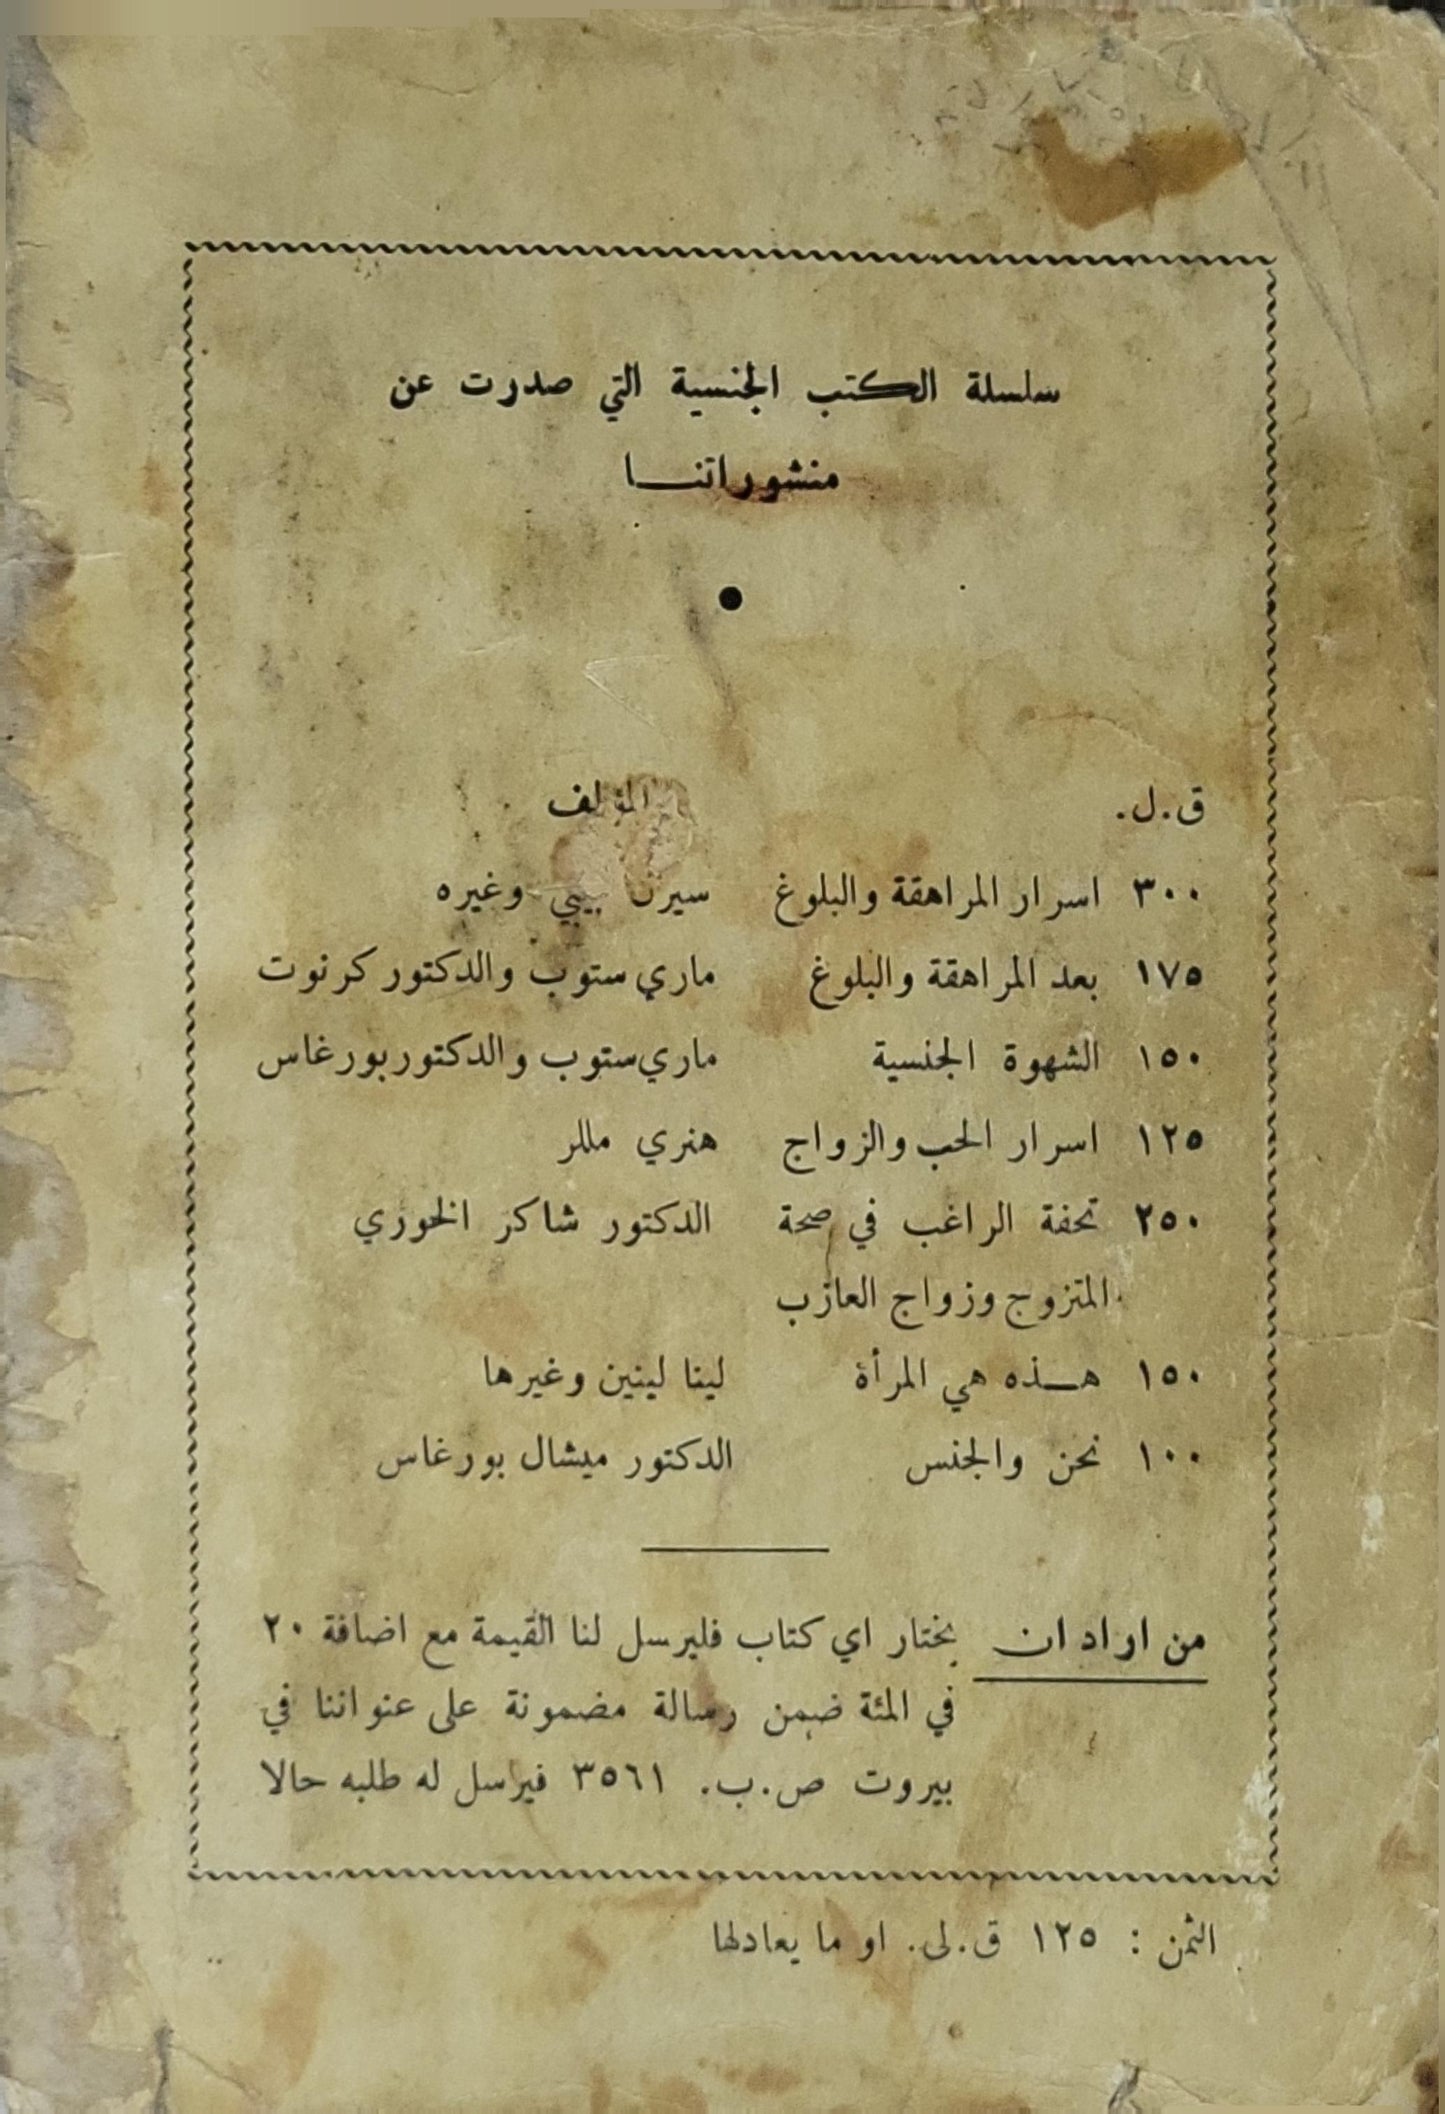 سلسلة الكتب الجنسية التي صدرت عن
منشوراتنـــا
ق.ل. المؤلف
٣٠٠ اسرار المراهقة والبلوغ سيرن بيبي وغيره
١٧٥ بعد المراهقة والبلوغ ماري ستوب والدكتور كرنوت
١٥٠ الشهوة الجنسية ماري ستوب والدكتور بورغاس
١٢٥ اسرار الحب والزواج هنري مللر
٢٥٠ تحفة الراغب في صحة الدكتور شاكر الخوري
المتزوج وزواج العازب
١٥٠ هــذه هي المرأة لينا لينين وغيرها
١٠٠ نحن والجنس الدكتور ميشال بورغاس
من اراد ان يختار اي كتاب فليرسل لنا القيمة مع اضافة ٢٠
في المئة ضمن رسالة مضمونة على عنواننا في
بيروت ص.ب. ٣٥٦١ فيرسل له طلبه حالا
الثمن : ١٢٥ ق.ل. او ما يعادلها